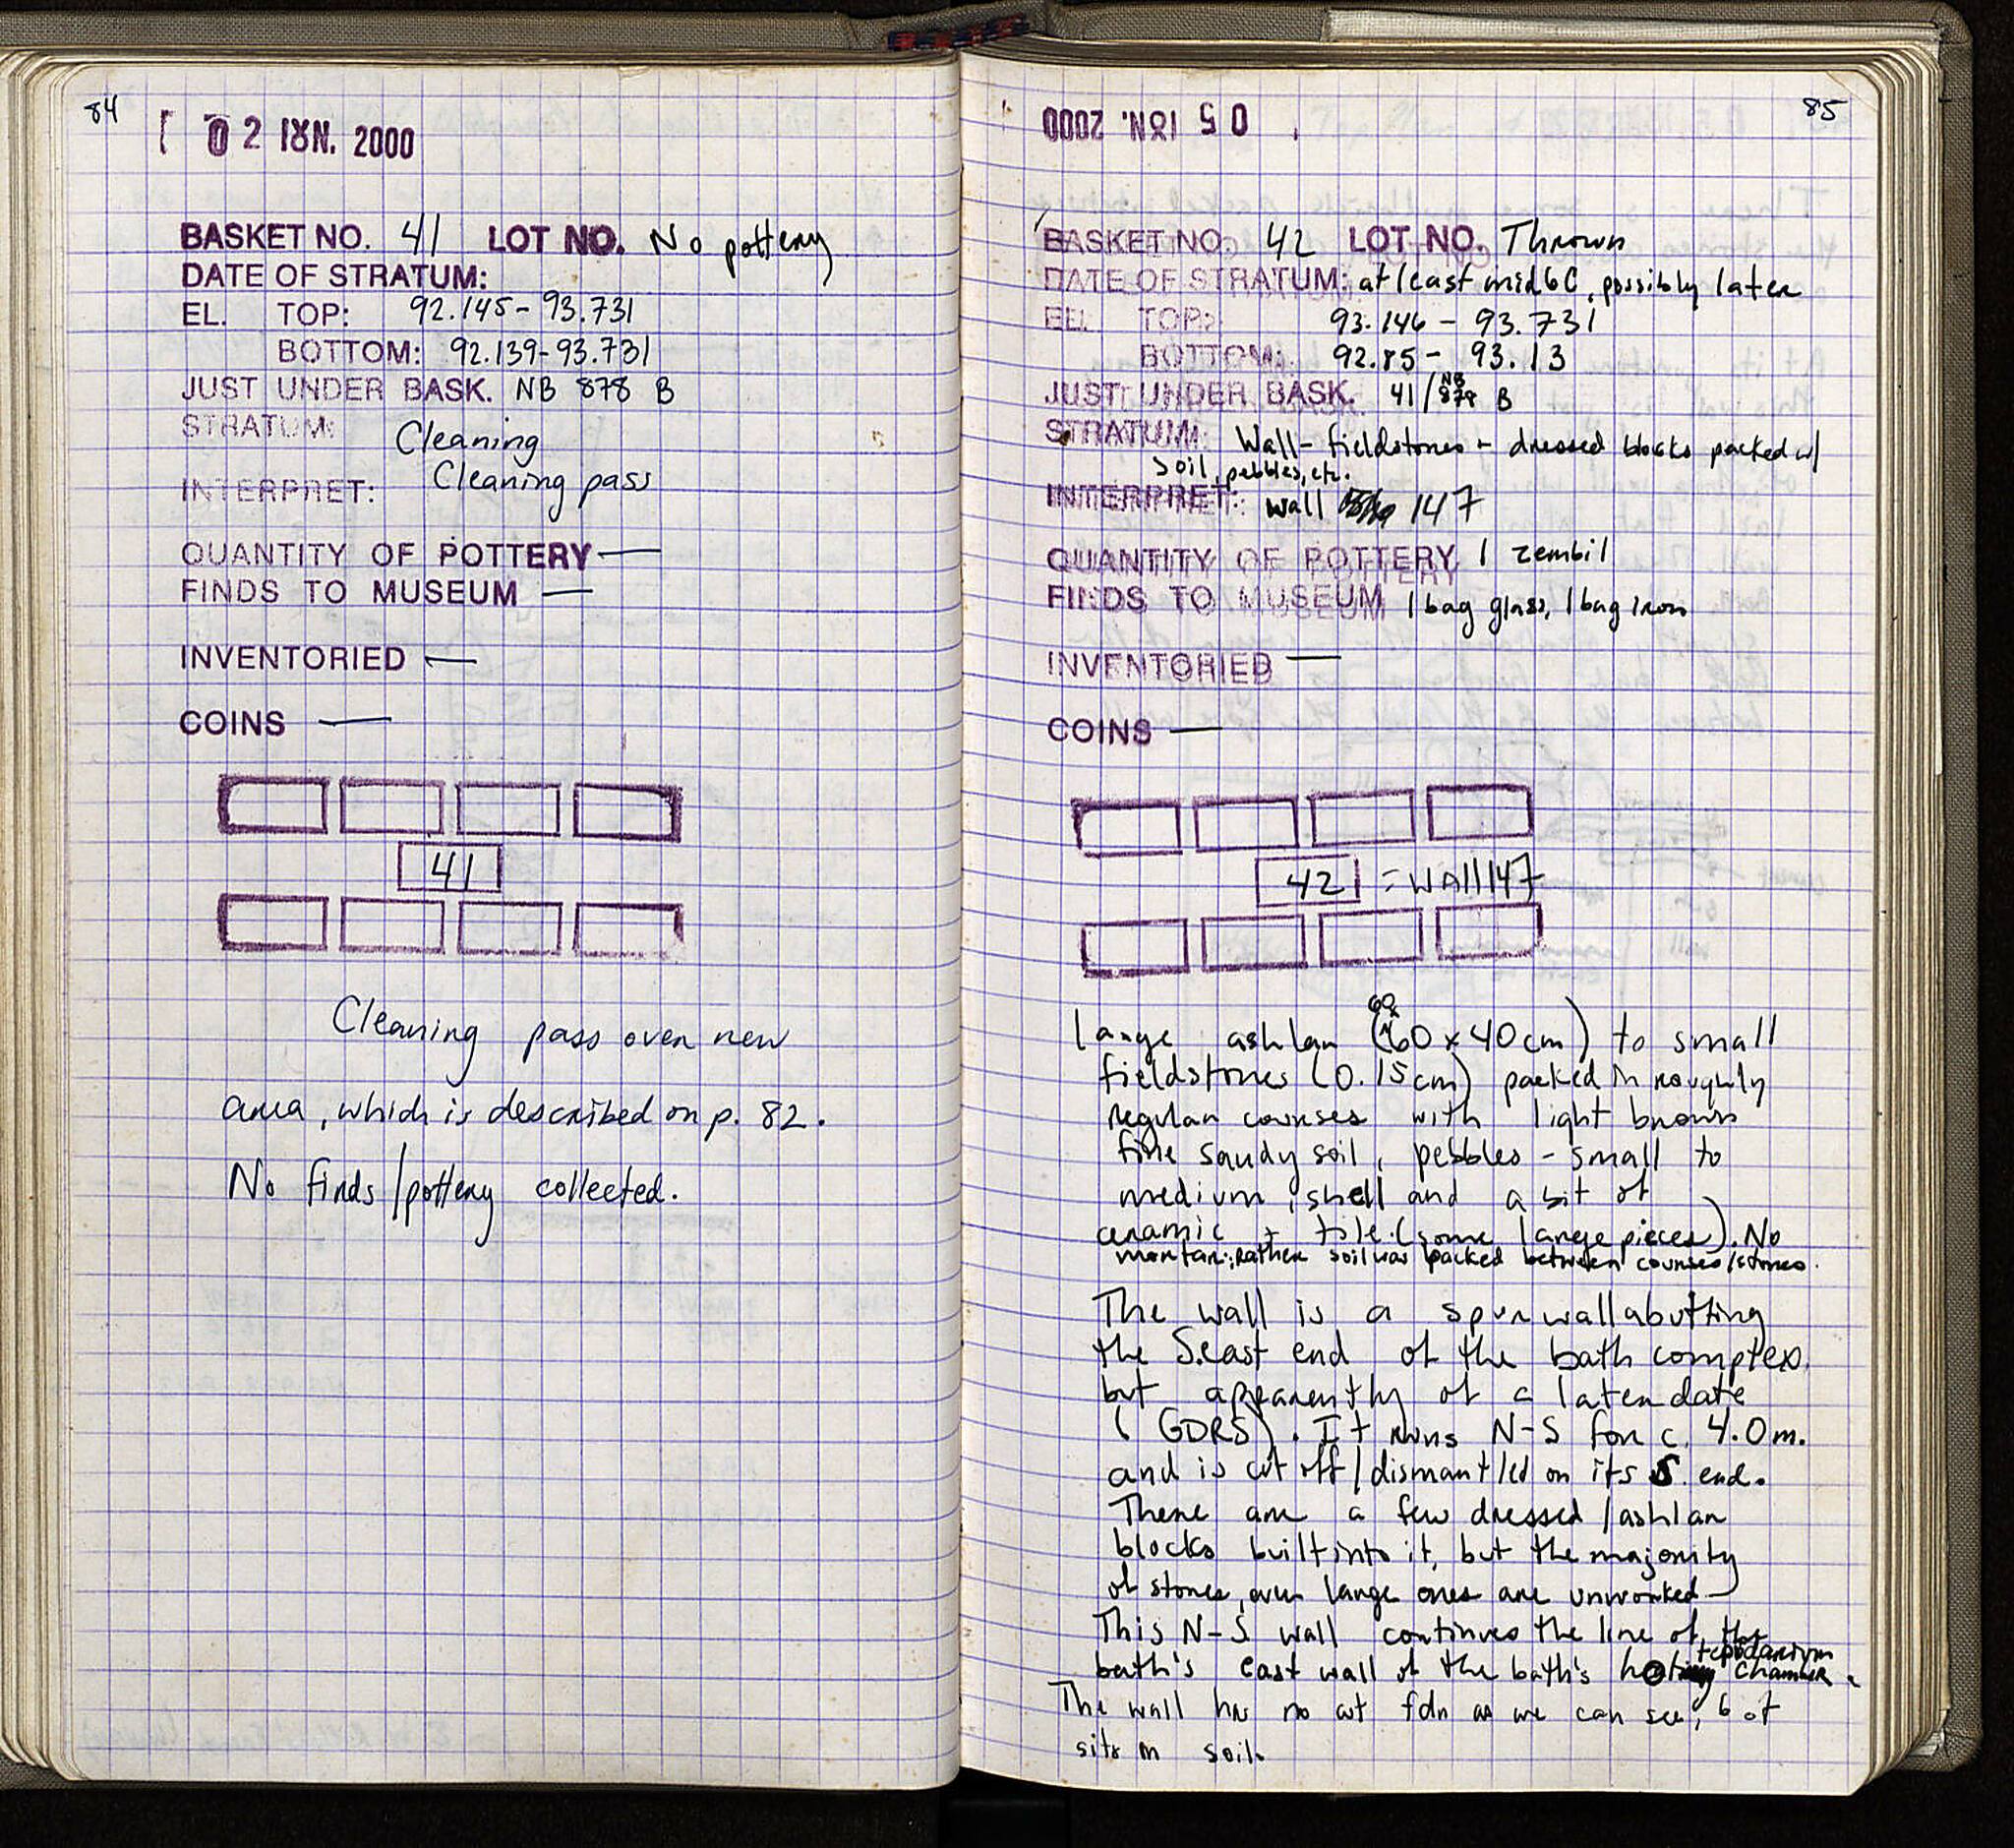 84
02 ΙΟΥΝ. 2000
BASKET NO. 41 LOT NO. No pottery
DATE OF STRATUM:
EL. TOP: 92.145- 93.731
BOTTOM: 92.139-93.731
JUST UNDER BASK. NB 878 B
STRATUM: Cleaning
INTERPRET: Cleaning pass
QUANTITY OF POTTERY —
FINDS TO MUSEUM —
INVENTORIED —
COINS —
41
Cleaning pass over new
area, which is described on p. 82.
No finds/pottery collected.
85
05 ΙΟΥΝ. 2000
BASKET NO. 42 LOT NO. Thrown
DATE OF STRATUM: at least mid 6C, possibly later
EL. TOP: 93.146 - 93.731
BOTTOM: 92.85 - 93.13
JUST UNDER BASK. 41/NB 878 B
STRATUM: Wall- fieldstones + dressed blocks packed w/
soil, pebbles, etc.
INTERPRET: wall 147
QUANTITY OF POTTERY 1 zembil
FINDS TO MUSEUM 1 bag glass, 1 bag iron
INVENTORIED —
COINS —
42 = WAll 147
large ashlar (60 x 60 x 40 cm) to small
fieldstones (0.15cm) packed in roughly
regular courses with light brown
fine sandy soil, pebbles - small to
medium, shell and a bit of
ceramic + tile (some large pieces). No
mortar; Rather soil was packed between courses/stones.
The wall is a spur wall abutting
the S.east end of the bath complex,
but apparently of a later date
(GDRS). It runs N-S for c. 4.0m.
and is cut off/dismantled on its S. end.
There are a few dressed/ashlar
blocks built into it, but the majority
of stones, even large ones are unworked—
This N-S wall continues the line of the
bath's east wall of the bath's tepidarium chamber.
The wall has no cut fdn as we can see,
sits in soil.